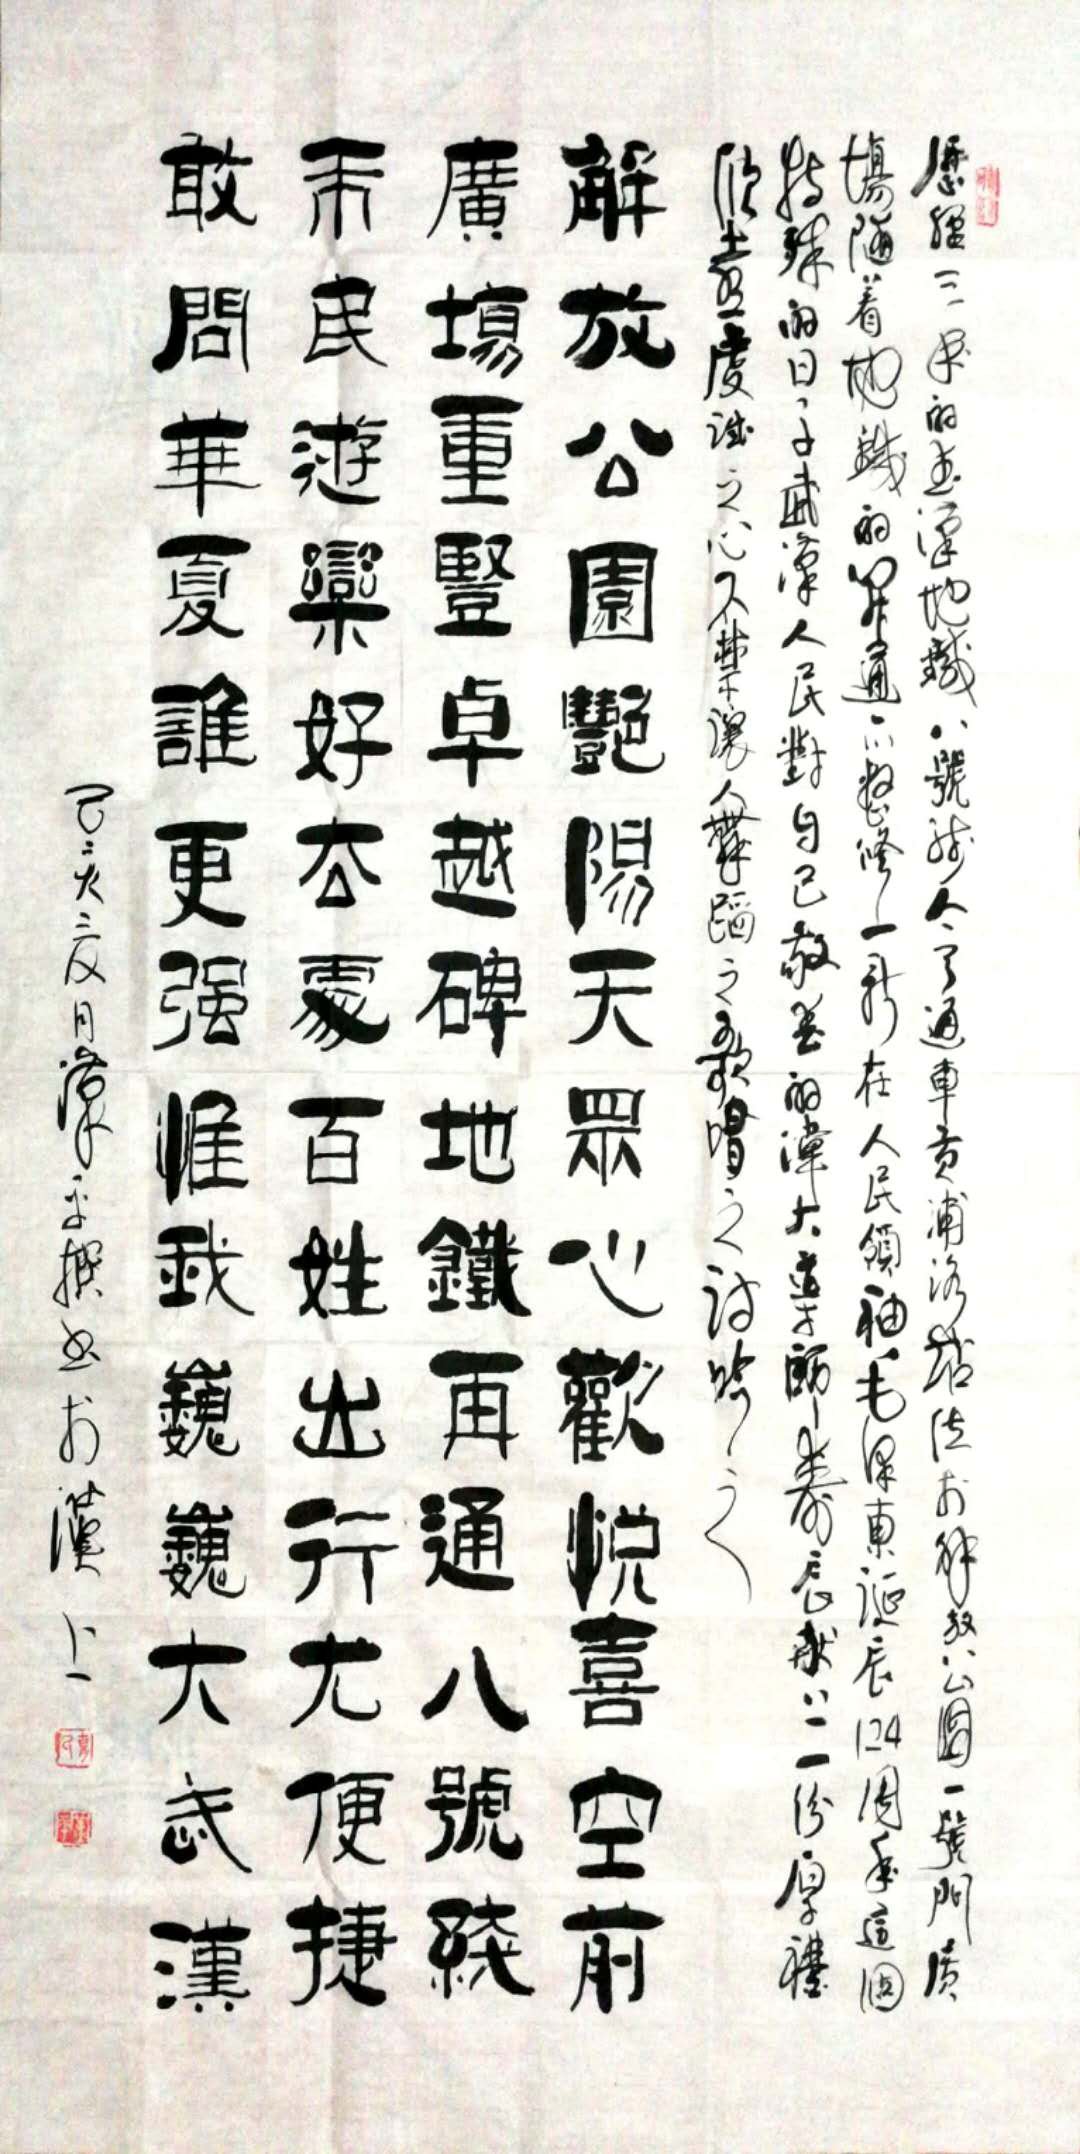 歷經三年的武漢地鐵八號線今已通車黃浦路站位於解放公園一號門廣
場隨著地鐵的開通已整修一新在人民領袖毛澤東誕辰124周年這個
特殊的日子武漢人民對自己敬愛的偉大導師壽辰献上一份厚禮
之心不禁讓人舞蹈之歌唱之詩吟之
解放公園艷陽天眾心歡悅喜空前
廣場重豎卓越碑地鐵再通八號綫
市民遊樂好去處百姓出行尤便捷
敢問華夏誰更强惟我巍巍大武漢
己亥二月漢平撰書於漢上